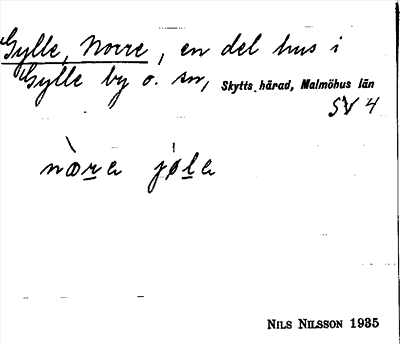 Gylle, Norre, en del hus i
Gylle by o. sn, Skytts härad, Malmöhus län
SV 4
nœ̀re jøle
NILS NILSSON 1935